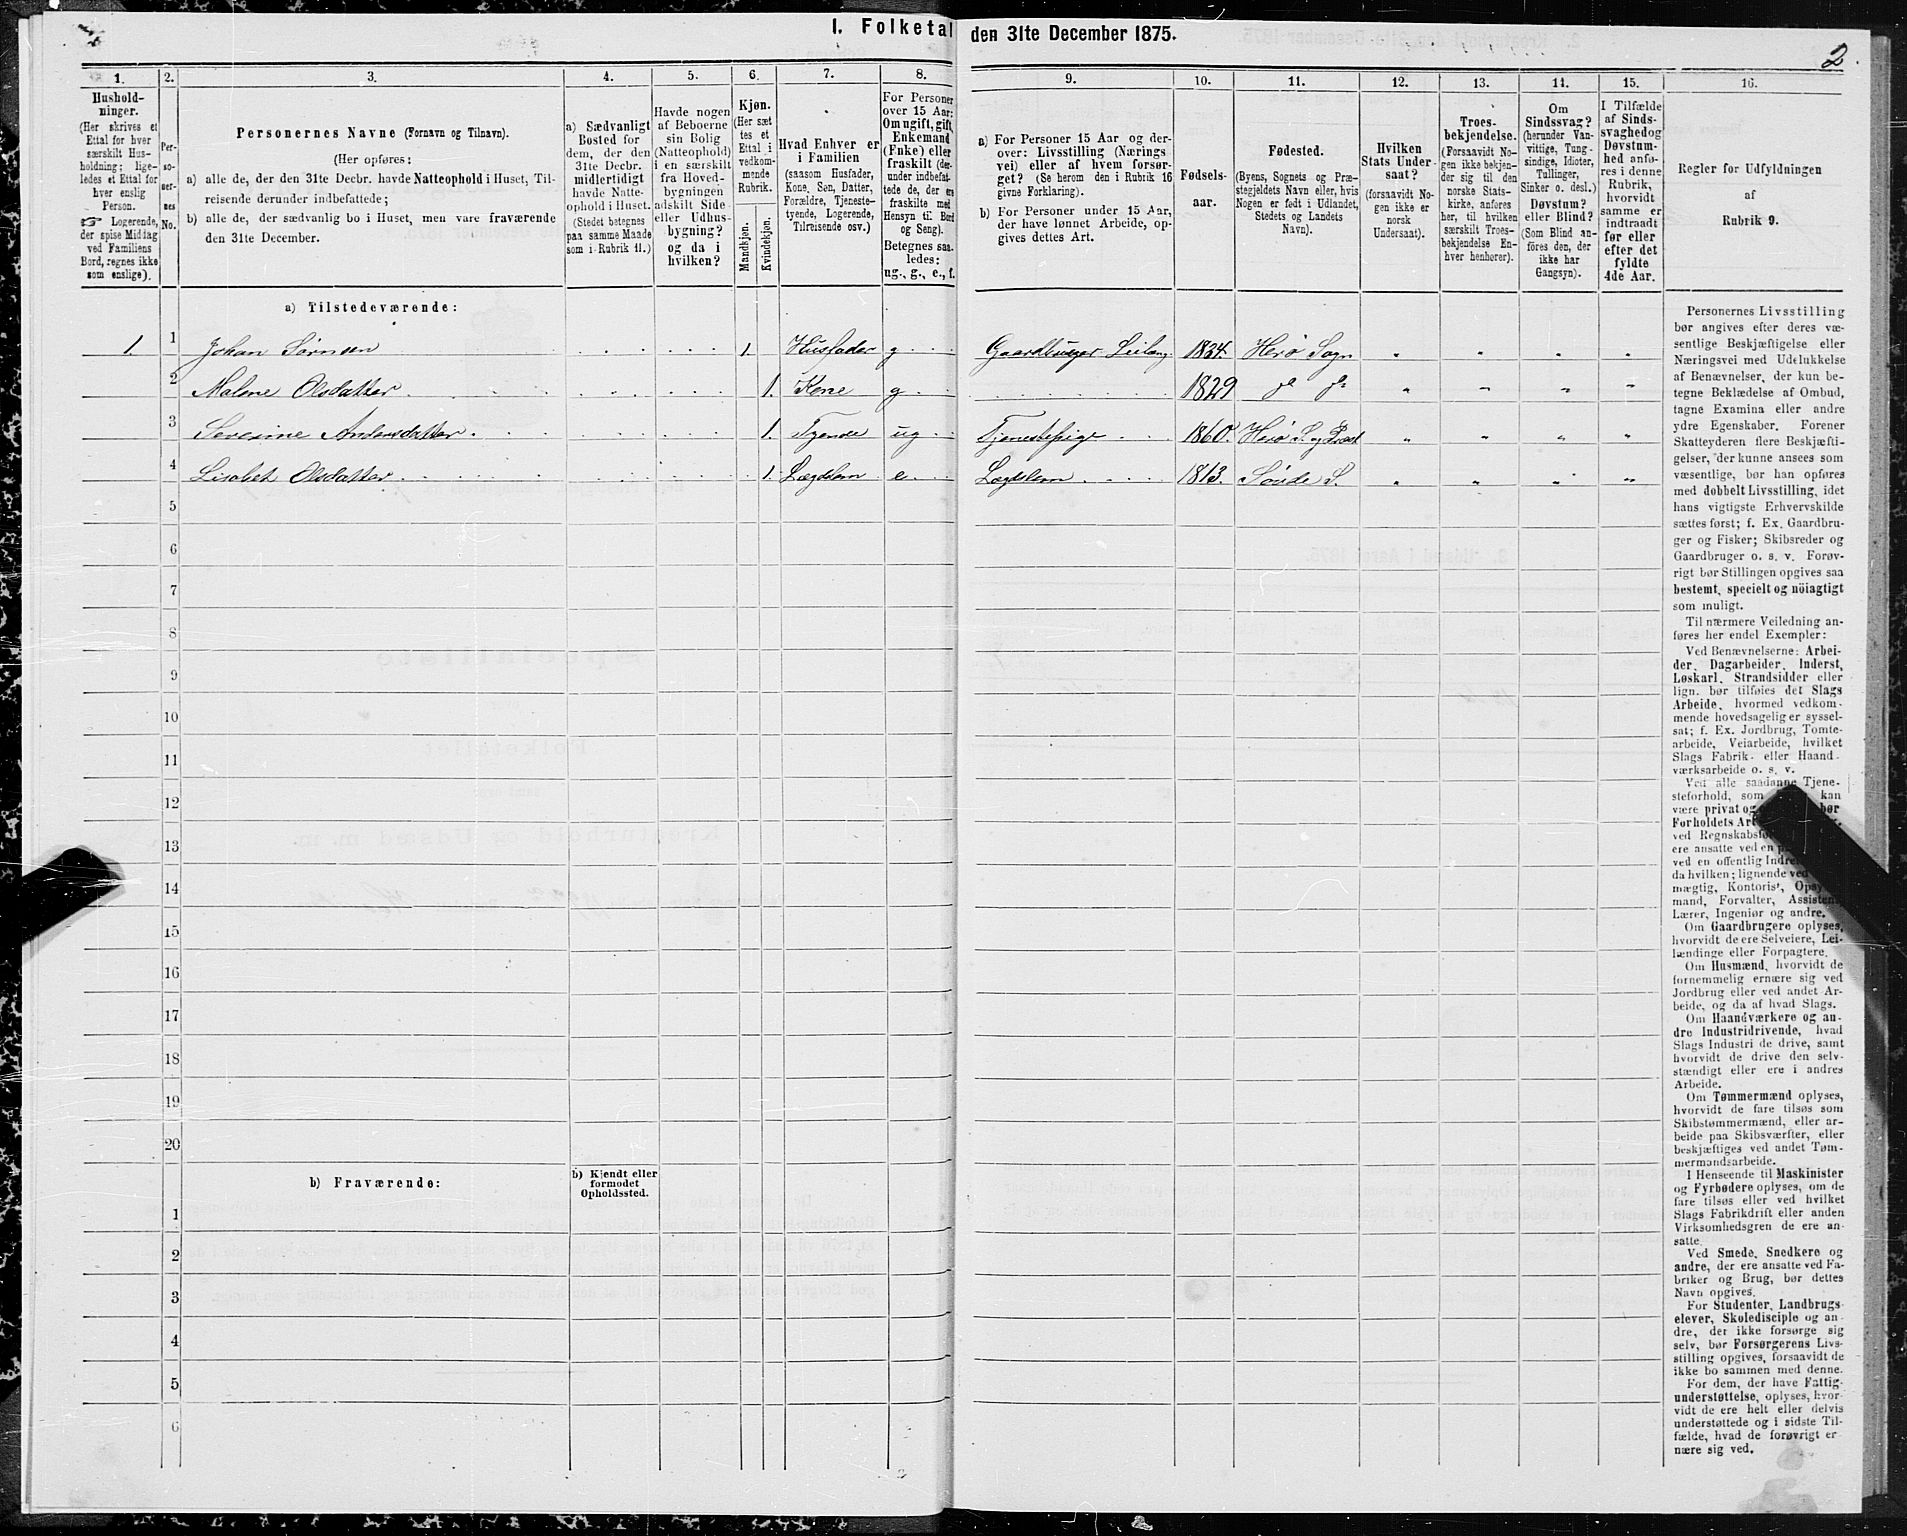 I. Folketal den 31te December 1875.
2
1. 2. 3. 4. 5. 6. 7. 8. 9. 10. 11. 12. 13. 14. 15. 16.
Hushold-
ninger.
(Her skrives et
Ettal for hver
særskilt Hus-
holdning; lige-
ledes et Ettal for
hver enslig
Person.
☞ Logerende,
der spise Middag
ved Familiens
Bord, regnes ikke
som enslige).
Per-
so-
ner-
nes
No.
Personernes Navne (Fornavn og Tilnavn).
(Her opføres:
a) alle de, der den 31te Decbr. havde Natteophold i Huset, Til-
reisende derunder indbefattede;
b) alle de, der sædvanlig bo i Huset, men vare fraværende
den 31te December.
a) Sædvanligt
Bosted for
dem, der den
31te Decbr.
midlertidigt
havde Natte-
ophold i Huset.
(Stedet betegnes
paa samme Maade
som i Rubrik 11.)
Havde nogen
af Beboerne
sin Bolig
(Natteophold)
i en særskilt
fra Hoved-
bygningen
adskilt Side-
eller Udhus-
bygning?
og da i
hvilken?
Kjøn.
(Her sæt
tes et
Ettal i
vedkom-
mende
Rubrik.
Mandkjøn.
Kvindekjøn.
Hvad Enhver er
i Familien
(saasom Husfader,
Kone, Søn, Datter,
Forældre, Tjeneste-
tyende, Logerende,
Tilreisende osv.)
For Personer
over 15 Aar:
Om ugift, gift,
Enkemand
(Enke) eller
fraskilt (der-
under indbefat-
tede de, der ere
fraskilte med
Hensyn til Bord
og Seng).
Betegnes saa-
ledes:
ug., g., e., f.
a) For Personer 15 Aar og der-
over: Livsstilling (Nærings-
vei) eller af hvem forsør-
get? (Se herom den i Rubrik 16
givne Forklaring).
b) For Personer under 15 Aar,
der have lønnet Arbeide, op-
gives dettes Art.
Fødsels-
aar.
Fødested.
(Byens, Sognets og Præ-
stegjeldets Navn eller, hvis
Nogen er født i Udlandet,
Stedets og Landets
Navn).
Hvilken
Stats Under-
saat?
(forsaavidt No-
gen ikke er
norsk
Undersaat).
Troes-
bekjendelse.
(Forsaavidt No-
gen ikke bekjen-
der sig til den
norske Stats-
kirke, anføres
her, til hvilken
særskilt Troes-
bekjendelse En-
hver henhører).
Om
Sindssvag?
(herunder Van-
vittige, Tung-
sindige, Idioter,
Tullinger,
Sinker o. desl.)
Døvstum?
eller Blind?
(Som Blind an-
føres den, der
ikke har
Gangsyn).
I Tilfælde
af Sinds-
svaghed og
Døvstum-
hed anfø-
res i denne
Rubrik,
hvorvidt
samme er
indtraadt
før eller
efter det
fyldte
4de Aar.
Regler for Udfyldningen
af
Rubrik 9.
a) Tilstedeværende:
1. 1 Johan Sørnsen 1. Husfader g Gaardbruger Leilæng 1834. Herø Sogn " " " "
2 Malene Olsdatter 1. Kone g 1829 do do " " " "
3 Severine Andersdatter 1. Tyende ug Tjenestepige 1860. Herø S. og Præst " " " "
4 Lisabet Olsdatter 1. Lægdslem e Lægdslem 1813. Søvde S. " " " "
5
6
7
8
9
10
11
12
13
14
15
16
17
18
19
20
b) Fraværende:
b) Kjendt eller
formodet
Opholdssted.
1
2
3
4
5
6
Personernes Livsstilling
bør angives efter deres væ-
sentlige Beskjæftigelse eller
Næringsvei med Udelukkelse
af Benævnelser, der kun be-
tegne Beklædelse af Ombud,
tagne Examina eller andre
ydre Egenskaber. Forener
Skatteyderen flere Beskjæfti-
gelser, der kunne ansees som
væsentlige, bør han opføres
med dobbelt Livsstilling, idet
hans vigtigste Erhvervskilde
sættes først; f. Ex. Gaardbru-
ger og Fisker; Skibsreder og
Gaardbruger o. s. v. Forøv-
rigt bør Stillingen opgives saa
bestemt, specielt og nöiagtigt
som muligt.
Til nærmere Veiledning an-
føres her endel Exempler:
Ved Benævnelserne: Arbei-
der, Dagarbeider, Inderst,
Løskarl, Strandsidder eller
lign. bør tilføies det Slags
Arbeide, hvormed vedkom-
mende hovedsagelig er syssel-
sat; f. Ex. Jordbrug, Tomte-
arbeide, Veiarbeide, hvilket
Slags Fabrik- eller Haand-
værksarbeide o. s. v.
Ved alle saadanne Tjene-
steforhold, som kan
være privat og bør
Forholdets
ved
ere ansatte ved en
ved en offentlig
da hvilken; lignende ved
mægtig, Kontorist,
mand, Forvalter,
Lærer, Ingeniør og andre.
Om Gaardbrugere oplyses,
hvorvidt de ere Selveiere, Lei-
lændinge eller Forpagtere.
Om Husmænd, hvorvidt de
fornemmelig ernære sig ved
Jordbrug eller ved andet Ar-
beide, og da af hvad Slags.
Om Haandværkere og an-
dre Industridrivende, hvad
Slags Industri de drive, samt
hvorvidt de drive den selv-
stændigt eller ere i andres
Arbeide.
Om Tømmermænd oplyses,
hvorvidt de fare tilsøs som
Skibstømmermænd, eller ar-
beide paa Skibsværfter, eller
beskjæftiges ved andet Tøm-
mermandsarbeide.
I Henseende til Maskinister
og Fyrbødere oplyses, om de
fare tilsøs eller ved hvilket
Slags Fabrikdrift eller anden
Virksomhedsgren de ere an-
satte.
Ved Smede, Snedkere og
andre, der ere ansatte ved Fa-
briker og Brug, bør dettes
Navn opgives.
For Studenter, Landbrugs-
elever, Skoledisciple og an-
dre, der ikke forsørge sig
selv, bør Forsørgerens Livs-
stilling opgives, forsaavidt de
ikke bo sammen med denne.
For dem, der have Fattig-
understøttelse, oplyses, hvor-
vidt de ere helt eller delvis
understøttede og i sidste Til-
fælde, hvad de forøvrigt er-
nære sig ved.